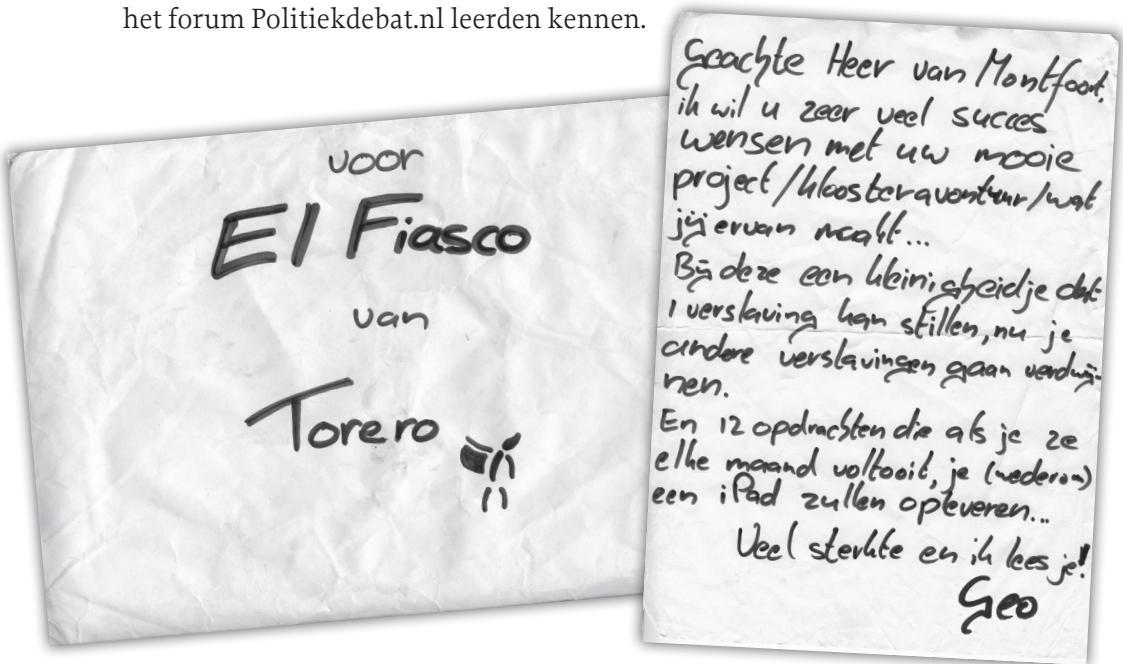 het forum Politiekdebat.nl leerden kennen.
voor
El Fiasco
van
Torero
Geachte Heer van Montfoort,
ik wil u zeer veel succes
wensen met uw mooie
project/kloosteravontuur/wat
jij ervan maakt...
Bij deze een kleinigheidje dat
1 verslaving kan stillen, nu je
andere verslavingen gaan verdwij-
nen.
En 12 opdrachten die als je ze
elke maand voltooit, je (wederom)
een iPad zullen opleveren...
Veel sterkte en ik lees je!
Geo